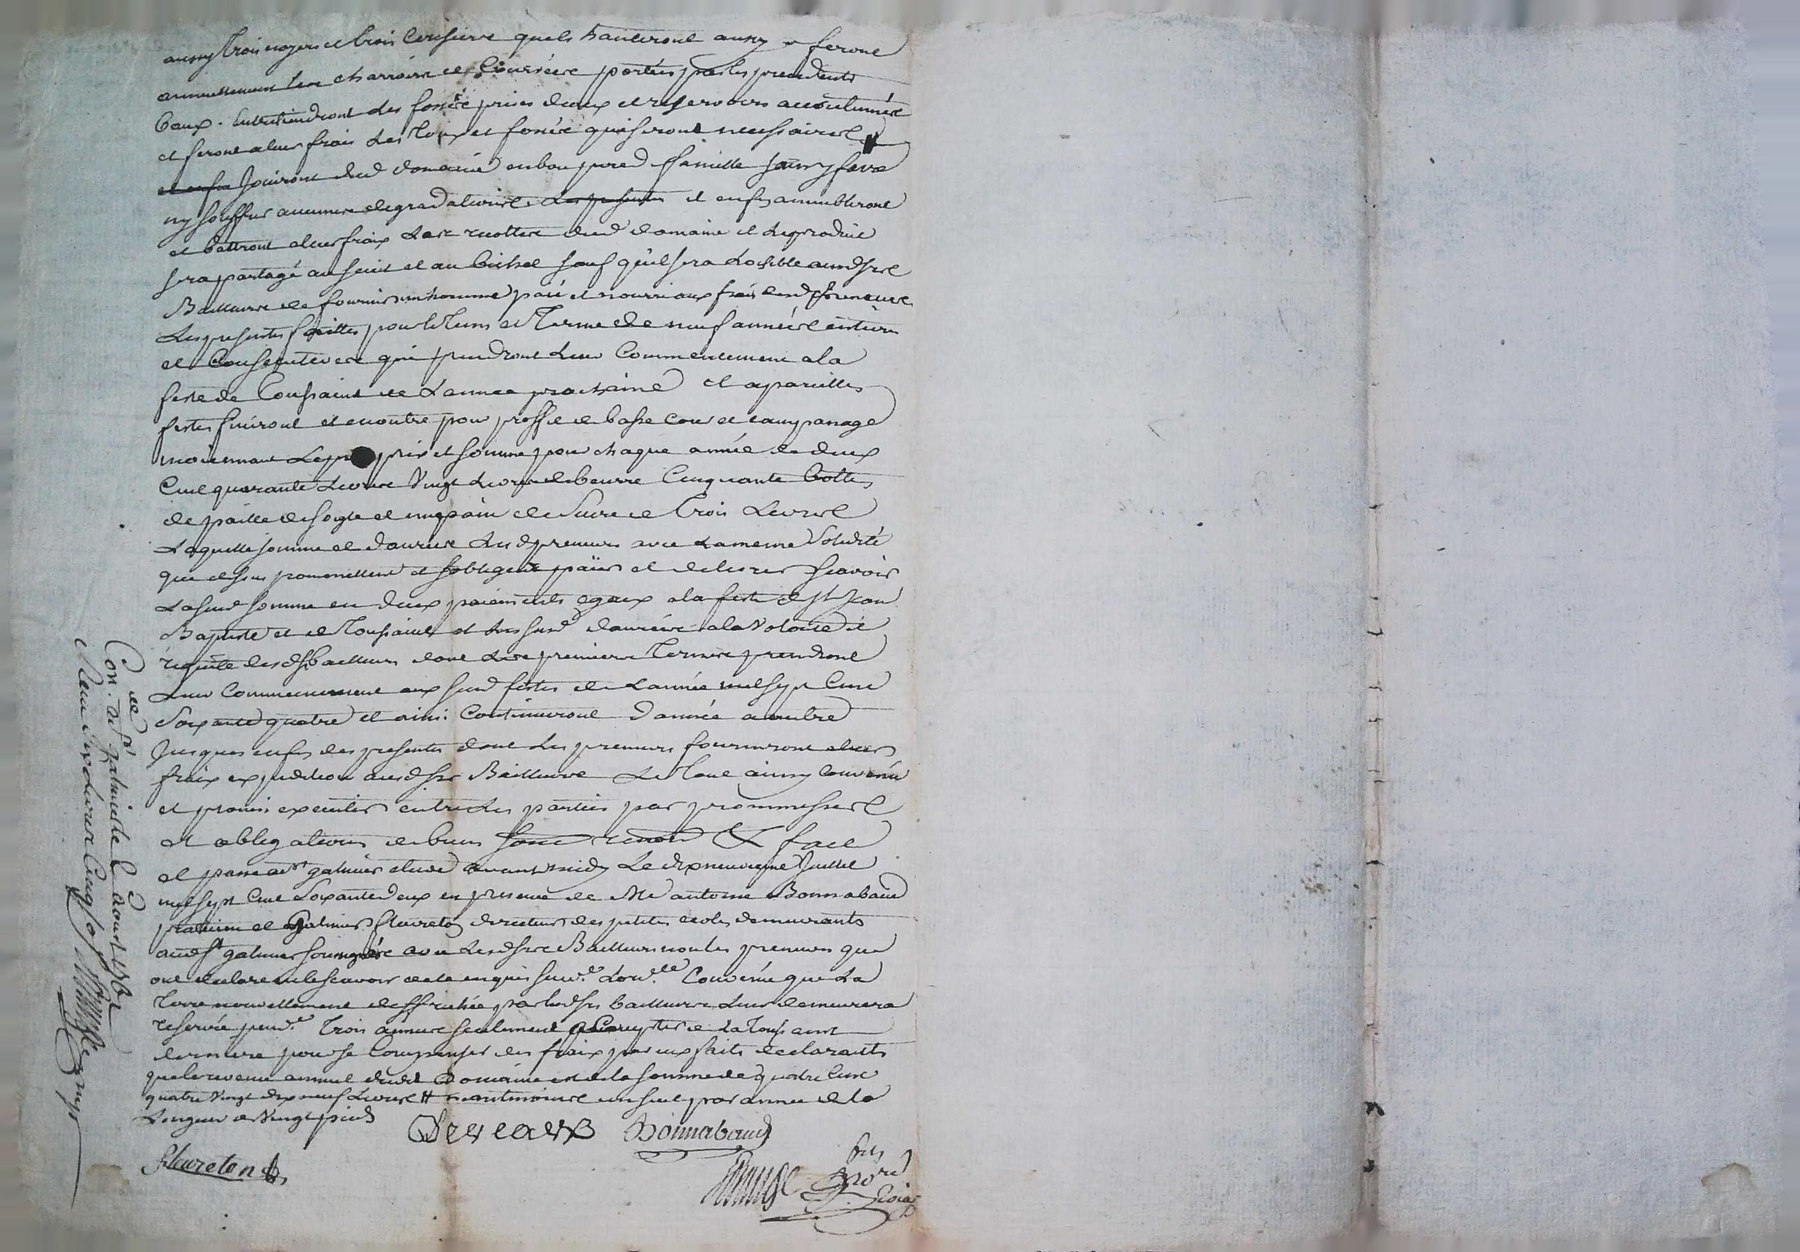 aussy trois noyers et trois cerisiers quels hanteront aussy & feront
annuellement les charrois et corvées portées par les precedents
Baux. Entretiendront les fossés prises deaux et reservoirs accoutumés
et feront a leur frais les toix et fossés qui seront necessaires
et enfin Jouiront dud domaine en bon pere d famille sans y faire
ny souffrir aucunes degradations. Les presentes et enfin ameubleront
et battront a leur fraix les recoltes dud domaine et le produit
sera partagé au et au bichet sauf quil sera loisible ausd srs
Bailleurs de fournir un homme paié et nourri aux frais desd preneurs
Les presentes faittes pour le tems et terme de neuf années entieres
et Consecutives qui prendront leur Commencement a la
feste de Toussaint de Lannee prochaine et a pareilles
festes finiront et en outre pour proffit de basse cour et
moiennant le prix et somme pour chaque année de deux
Cent quarante Livres Vingt Livres de beurre Cinquante bottes
de paille de soigle et un pain de Sucre de trois Livres
Laquelle somme et danrées Lesd preneurs avec la meme Solidité
que dessus promettent et sobligent paier et delivrer Scavoir
Lasusd somme en deux paiements egaux a la feste de St Jean
Baptiste et de Toussaint et les susd danrées a la Volonté et
requête desd srs bailleurs dont les premiers termes prendront
Leur Commencement aux susd festes de Lannée mil sept Cent
Soixante quatre et ainsi Continueront dannée a autre
Jusques en fin des presentes dont les preneurs fourniront a leurs
fraix expedition ausd srs Bailleurs Le tout ainsy Convenu
et promis executer entre les parties par prommesses
et obligations de biens soum renon & fait
et passé a St galmier etude avant midy Le dixneuvieme Juillet
mil sept Cent Soixante deux en presence de Me antoine Bonnabaud
praticien et galmier Fleureton directeur des petites ecoles demeurants
aud St galmier soussignés avec Lesd srs Bailleurs non les preneurs qui
ont declaré ne le scavoir de ce enquis Convenu que La
terre nouvellement deffrichée par lesd srs bailleurs leur demeurera
reservée pend.t trois années seulement a Compter de La Toussaint
derniere pour se Compenser des fraix par eux faits declarants
que le revenu annuel dudit Domaine est de la somme de quatre Cent
quatre Vingt dix neuf Livres par annee de la
Longueur de Vingt pieds
Deveaux Bonnabaud
Fleureton
Pns
No.re
Roial
Con. a St galmier le 2 aoust 1762